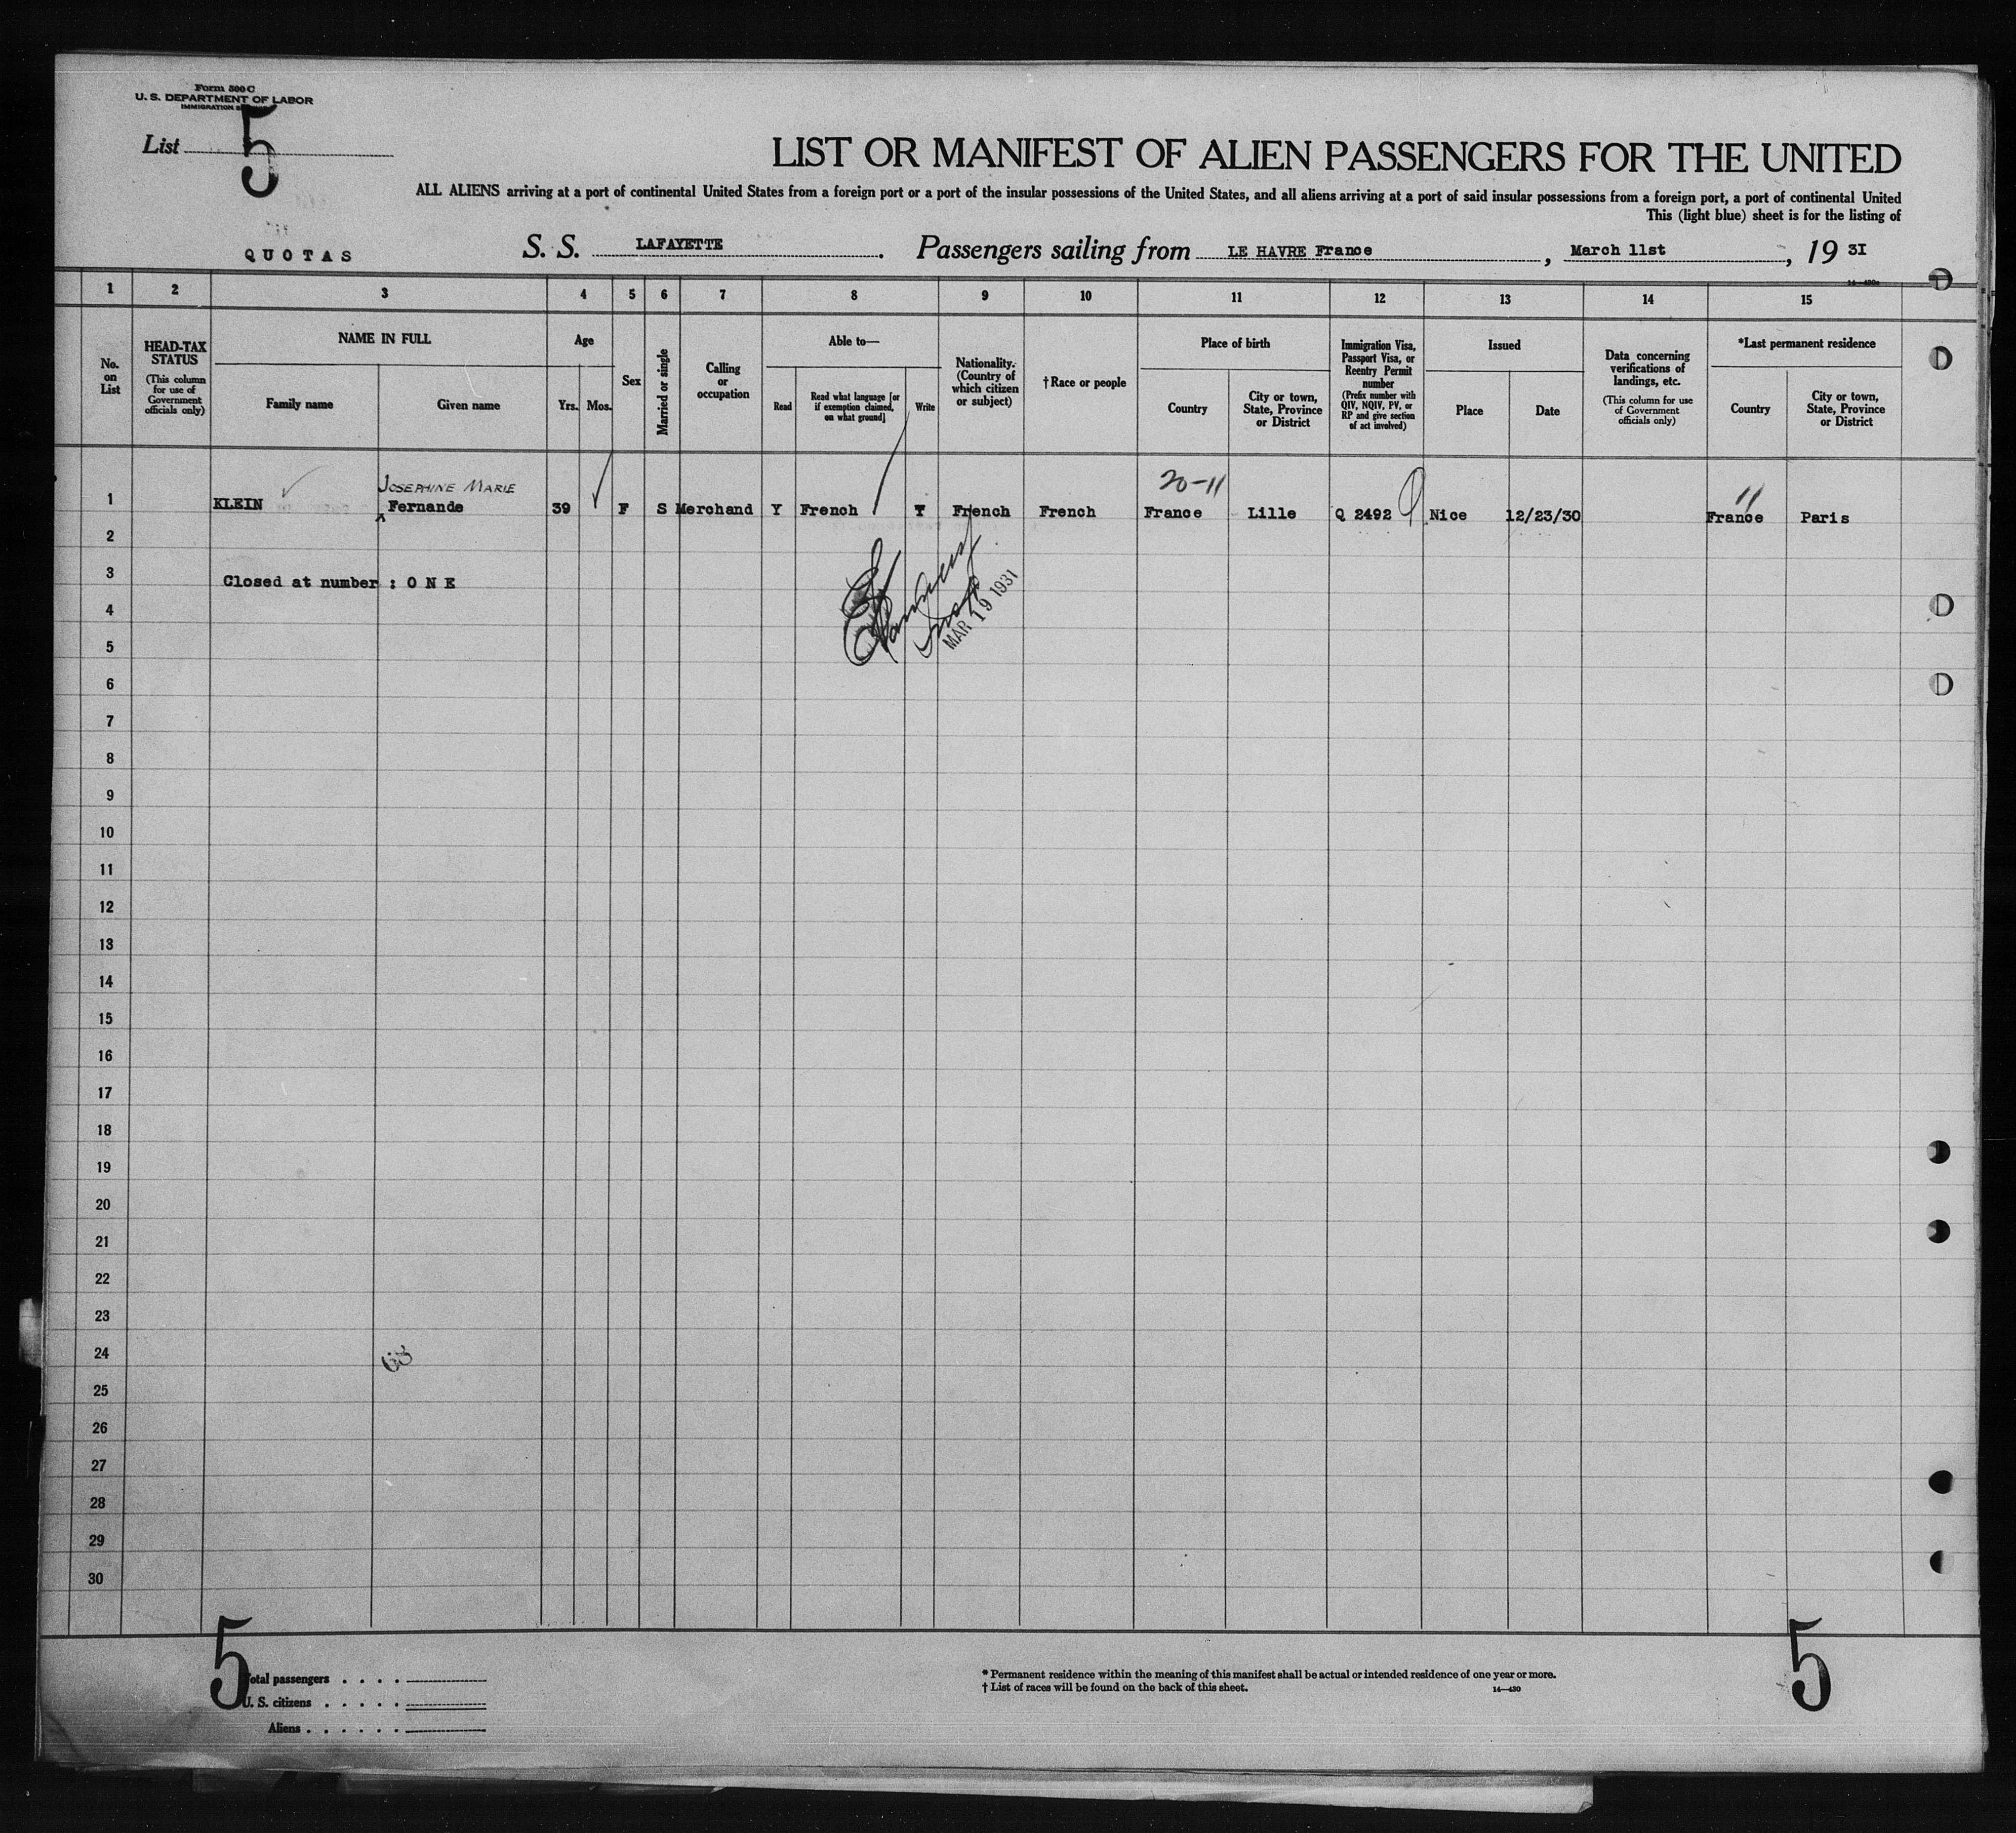 Form 500 C
U. S. DEPARTMENT OF LABOR
IMMIGRATION
List 5
LIST OR MANIFEST OF ALIEN PASSENGERS FOR THE UNITED
ALL ALIENS arriving at a port of continental United States from a foreign port or a port of the insular possessions of the United States, and all aliens arriving at a port of said insular possessions from a foreign port, a port of continental United
This (light blue) sheet is for the listing of
QUOTAS S. S. LAFAYETTE. Passengers sailing from LE HAVRE France, March 11st, 19 3I
1 2 3 4 5 6 7 8 9 10 11 12 13 14 15
No. on List
HEAD-TAX STATUS (This column for use of Government officials only)
NAME IN FULL
Family name Given name
Age
Yrs. Mos.
Sex
Married or single
Calling or occupation
Able to—
Read Read what language [or if exemption claimed, on what ground] Write
Nationality. (Country of which citizen or subject)
† Race or people
Place of birth
Country City or town, State, Province or District
Immigration Visa, Passport Visa, or Reentry Permit number (Prefix number with QIV, NQIV, PV, or RP and give section of act involved)
Issued
Place Date
Data concerning verifications of landings, etc. (This column for use of Government officials only)
*Last permanent residence
Country City or town, State, Province or District
JOSEPHINE MARIE 20-11 11
1 KLEIN Fernande 39 F S Merchand Y French Y French French France Lille Q 2492 Nice 12/23/30 France Paris
2
3 Closed at number : O N E
MAR 19 1931
4
5
6
7
8
9
10
11
12
13
14
15
16
17
18
19
20
21
22
23
24
25
26
27
28
29
30
5 Total passengers
U. S. citizens
Aliens
* Permanent residence within the meaning of this manifest shall be actual or intended residence of one year or more.
† List of races will be found on the back of this sheet. 14—430
5